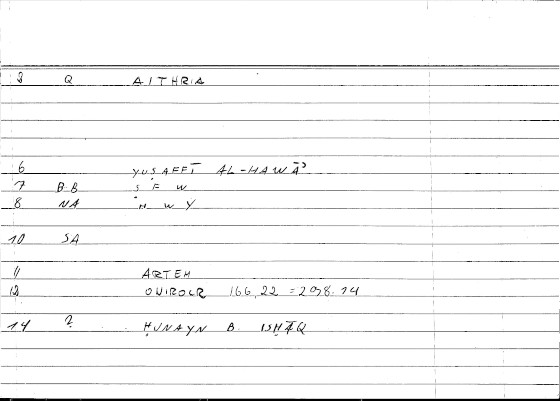 3 Q AITHRIA
6 YUṢAFFĪ AL-HAWĀʾ
7 B.B Ṣ F W
8 NA H W Y
10 SA
11 ARTEM
12 ONIROCR 166,22 = 298.14
14 ? ḤUNAYN B. ISḤĀQ